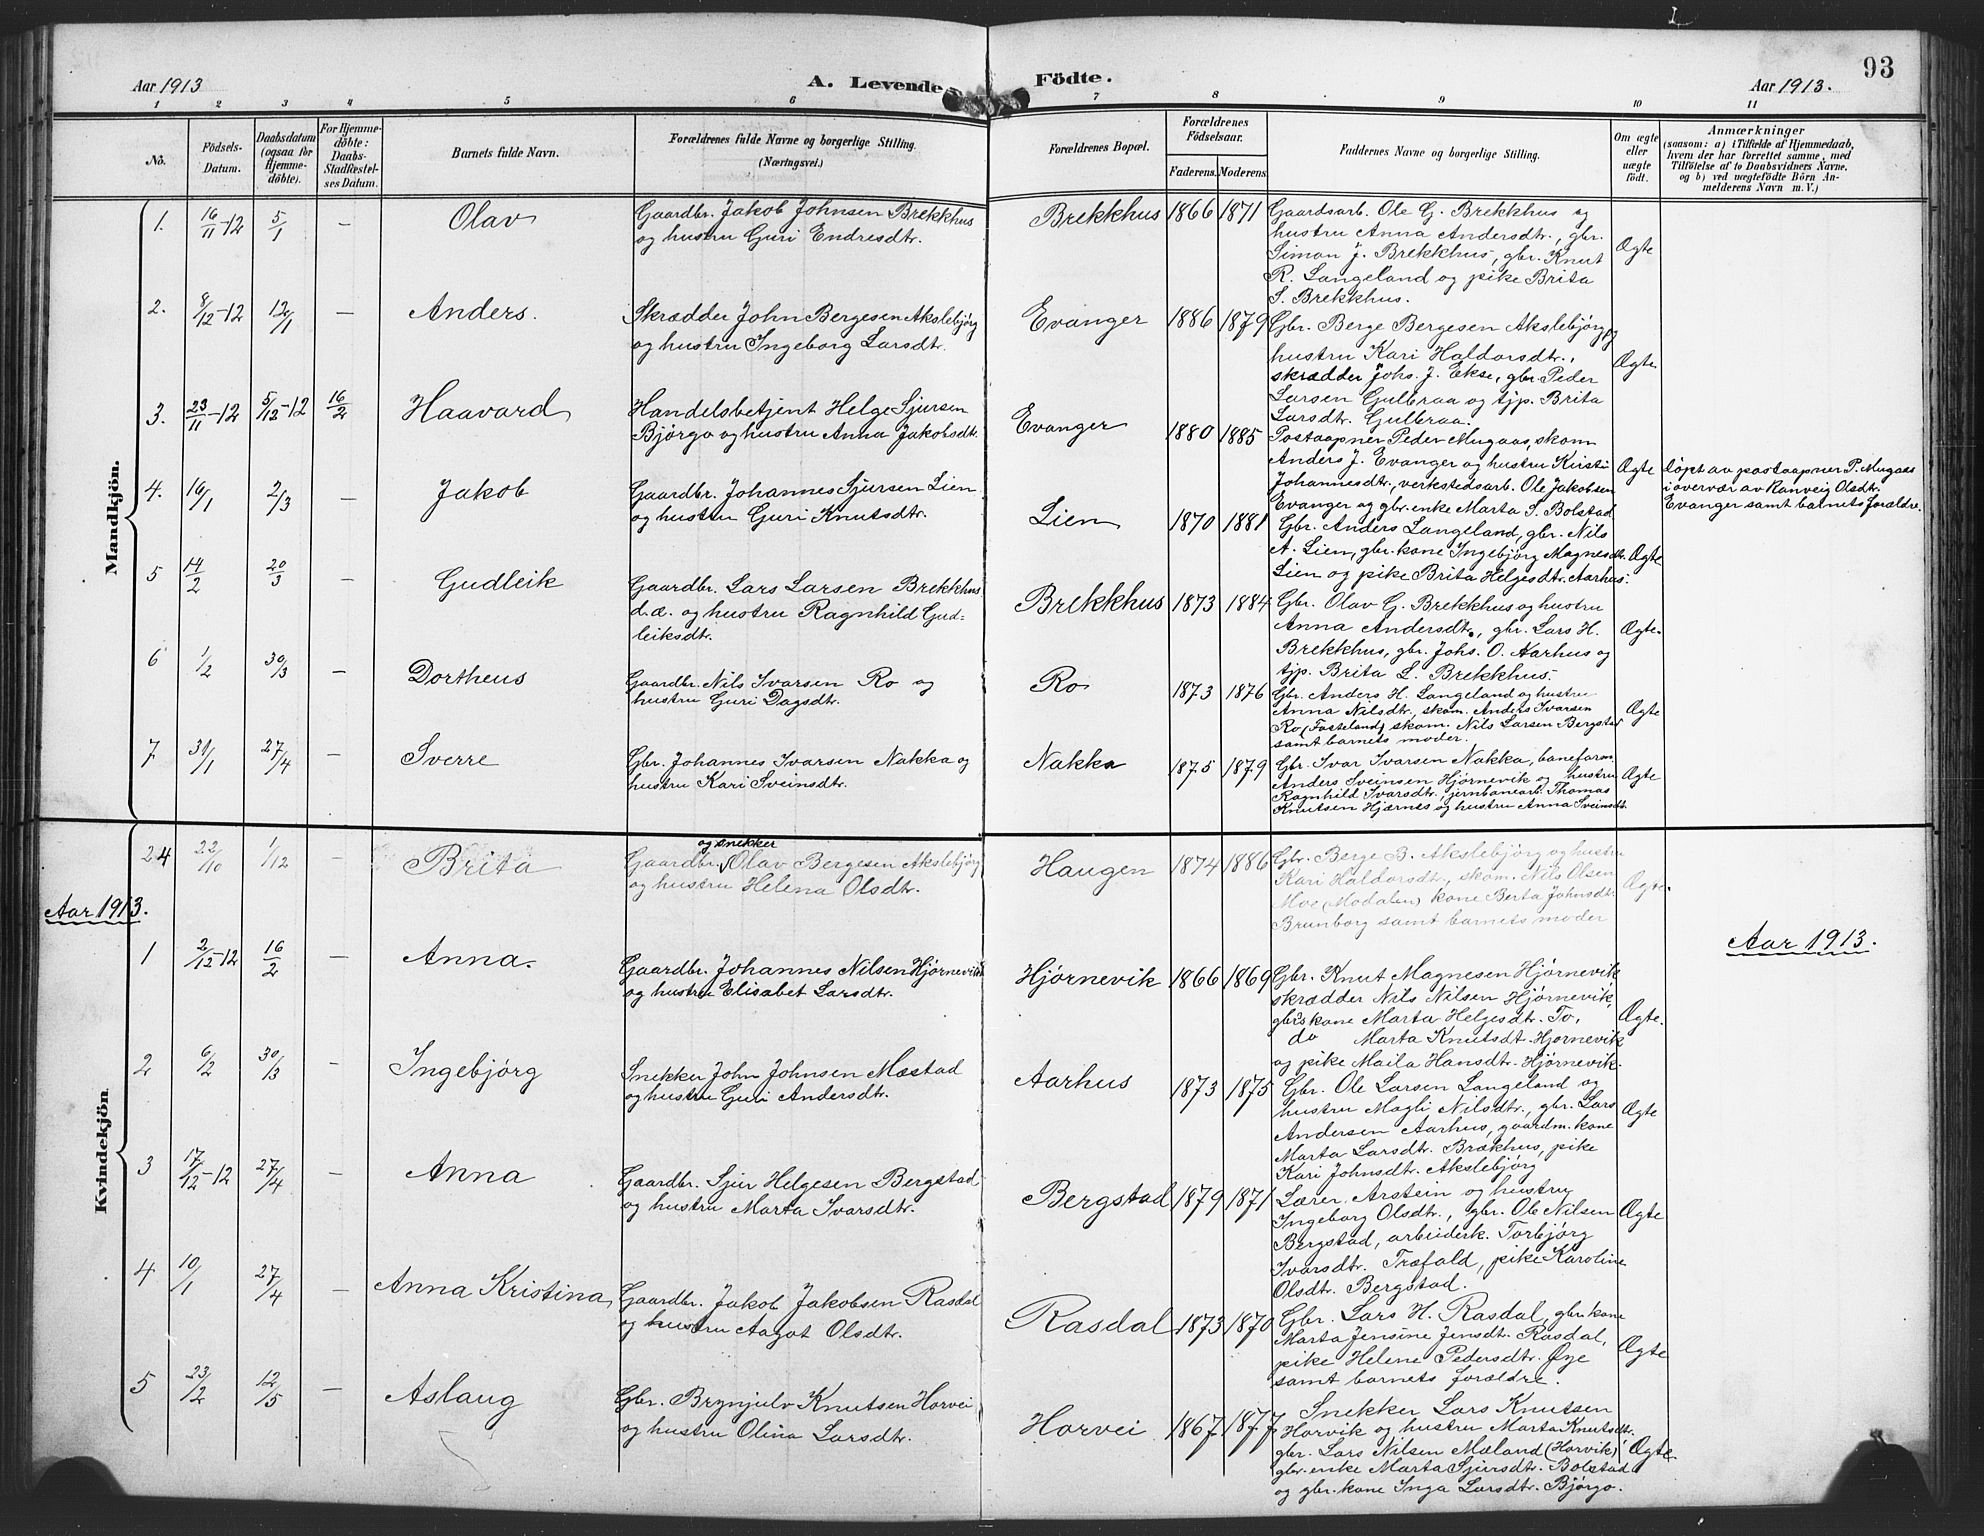 93
Aar 1913
A. Levende Födte.
Aar 1913.
1 2 3 4 5 6 7 8 9 10 11
No.
Födsels-Datum.
Daabsdatum (ogsaa for Hjemme-döbte).
For Hjemme-döbte: Daabs-Stadfæstel-ses Datum.
Barnets fulde Navn.
Forældrenes fulde Navne og borgerlige Stilling.
(Næringsvei.)
Forældrenes Bopæl.
Forældrenes Födselsaar.
Faderens. Moderens.
Faddernes Navne og borgerlige Stilling.
Om ægte eller uægte födt.
Anmærkninger
(saasom: a) i Tilfælde af Hjemmedaab,
hvem der har forrettet samme, med
Tilföielse af to Daabsvidners Navne.
og b) ved uægtefödte Börn An-
melderens Navn m. V.)
Mandkjön.
1. 16/11-12 5/1 — Olav
Gaardbr. Jakob Johnsen Brekkhus
og hustru Guri Endresdtr.
Brekkhus 1866 1871
Gaardsarb. Ole G. Brekkhus og
hustru Anna Andersdtr., gbr.
Simon J. Brekkhus, gbr. Knut
R. Langeland og pike Brita
S. Brekkhus.
Ægte
2. 8/12-12 12/1 — Anders.
Skrædder John Bergesen Akslebjörg
og hustru Ingeborg Larsdtr.
Evanger 1886 1879
Gbr. Berge Bergesen Akslebjørg og
hustru Kari Haldorsdtr.,
skrædder Johs. J. Ekse, gbr. Peder
Larsen Gulbraa og tjp. Brita
Larsdtr. Gulbraa.
Ægte
3. 23/11-12 5/12-12 16/2 Haavard
Handelsbetjent Helge Sjursen
Bjørgo og hustru Anna Jakobsdtr.
Evanger 1880 1885
Postaapner Peder Mugaas, skom.
Anders J. Evanger og hustru Kirsti
Johannesdtr., verkstedsarb. Ole Jakobsen
Evanger og gbr. enke Marta S. Bolstad
Ægte
Döpt av postaapner P. Mugaas
i overvær av Ranveig Olsdtr.
Evanger samt barnets forældre.
4. 16/1 2/3 — Jakob
Gaardbr. Johannes Sjursen Lien
og hustru Guri Knutsdtr.
Lien 1870 1881
Gbr. Anders Langeland, gbr. Nils
A. Lien, gbr. kone Ingebjörg Magnesdtr.
Lien og pike Brita Helgesdtr. Aarhus.
Ægte
5 14/2 20/3 — Gudleik
Gaardbr. Lars Larsen Brekkhus
d.æ. og hustru Ragnhild Gud-
leiksdtr.
Brekkhus 1873 1884
Gbr. Olav G. Brekkhus og hustru
Anna Andersdtr., gbr. Lars H.
Brekkhus, gbr. Johs. O. Aarhus og
tjp. Brita L. Brekkhus.
Ægte.
6 1/2 30/3 — Dortheus
Gaardbr. Nils Ivarsen Ro og
hustru Guri Dagsdtr.
Ro 1873 1876
Gbr. Anders H. Langeland og hustru
Anna Nilsdtr., skom. Anders Ivarsen
Ro (Fosteland), skom. Nils Larsen Bergstad
samt barnets moder.
Ægte
7 31/1 27/4 — Sverre
Gbr. Johannes Ivarsen Nakka og
hustru Kari Sveinsdtr.
Nakka 1875 1879
Gbr. Ivar Ivarsen Nakka, baneform.
Anders Sveinsen Hjørnevik og hustru
Ragnhild Ivarsdtr., jernbanearb. Thomas
Knutsen Hjærnes og hustru Anna Sveinsdtr.
Ægte
24 22/10 1/12 — Brita
og snekker
Gaardbr. Olav Bergesen Akslebjørg
og hustru Helena Olsdtr.
Haugen 1874 1886
Gbr. Berge B. Akslebjörg og hustru
Kari Haldorsdtr., skom. Nils Olsen
Moe (Modalen) kone Berta Johnsdtr.
Brunborg samt barnets moder
Ægte.
Aar 1913.
Aar 1913.
Kvindekjön
1 2/12-12 16/2 — Anna.
Gaardbr. Johannes Nilsen Hjörnevik
og hustru Elisabet Larsdtr.
Hjørnevik 1866 1869
Gbr. Knut Magnesen Hjörnevik,
skrædder Nils Nilsen Hjörnevik,
gbr.s kone Marta Helgesdtr. To,
do Marta Knutsdt. Hjørnevik
og pike Maila Hansdt. Hjørnevik.
Ægte.
2 6/2 30/3 — Ingebjørg
Snekker John Johnsen Mæstad
og hustru Guri Andersdtr.
Aarhus 1873 1875
Gbr. Ole Larsen Langeland og
hustru Magli Nilsdtr., gbr. Lars
Andersen Aarhus, gaardm. kone
Marta Larsdtr. Brækhus, pike
Kari Johnsdtr. Akslebjörg
Ægte
3 17/12-12 27/4 — Anna
Gaardbr. Sjur Helgesen Bergstad
og hustru Marta Ivarsdtr.
Bergstad 1879 1871
Lærer Arstein og hustru
Ingeborg Olsdtr., gbr. Ole Nilsen
Bergstad, arbeiderk. Torbjörg
Ivarsdtr. Træfald, pike Karoline
Olsdtr. Bergstad.
Ægte
4 10/1 27/4 — Anna Kristina
Gaardbr. Jakob Jakobsen Rasdal
og hustru Aagot Olsdtr.
Rasdal 1873 1870
Gbr. Lars H. Rasdal, gbr. kone
Marta Jensine Jensdt. Rasdal,
pike Helene Pedersdtr. Øye
samt barnets forældre.
Ægte
5 23/12 12/5 — Aslaug
Gbr. Brynjulv Knutsen Horvei
og hustru Olina Larsdtr.
Horvei 1867 1877
Snekker Lars Knutsen
Horvik og hustru Marta Knutsdtr.
gbr. Lars Nilsen Mæland (Horvik),
gbr. enke Marta Sjursdtr. Bolstad
og gbr. kone Inga Larsdtr. Bjørgo.
Ægte